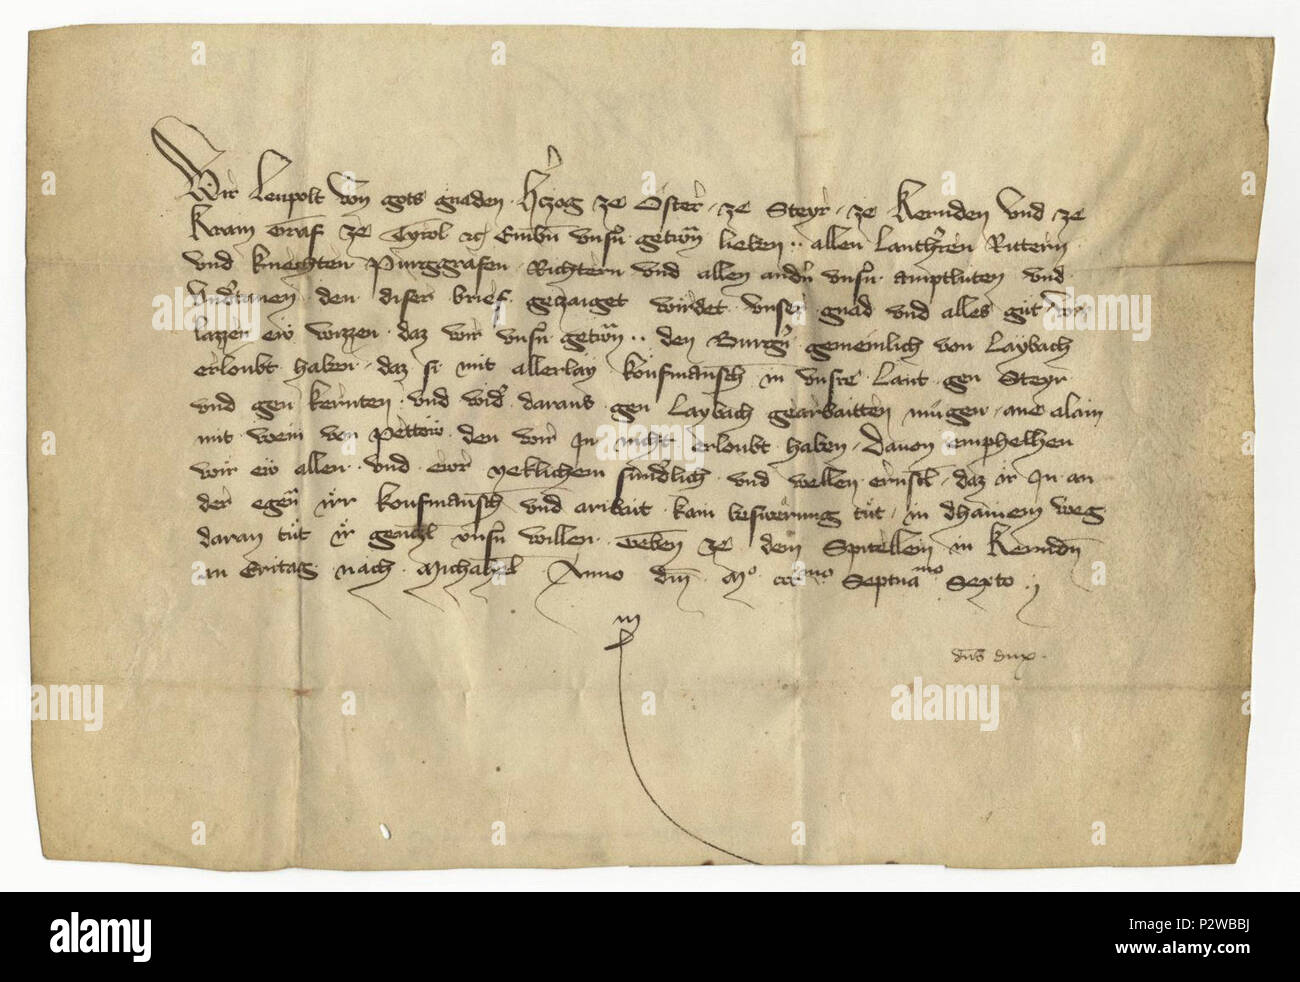 Wir Leupolt von gots gnaden Hertzog ze Österr ze Steyr ze Kernden und ze
Krain Graf ze Tyrol etc Embieten unsern getrewn lieben allen Lantherren Rittern
und knechten Purggrafen Richtern und allen andern unsern amptluten und
undertanen den diser brief getzaiget wirdet unser gnad und alles gut wir
lazzen ew wizzen daz wir unsern getrewn den Burgern gemeinlich von Laybach
erloubt haben daz si mit allerlay koufmanschaft in unsre Lant gen Steyr
und gen kernten und wider daraus gen Laybach gearbaitten mugen ane alain
mit wein von Pettow den wir In nicht erloubt haben Davon emphelhen
wir ew allen und ewr yeklichem sunderlich und wellen ernstlich daz ir In an
der egenanten irr koufmanschaft und aribait kain beswerung tut in dhainem weg
daran tut ir gentzlich unsern willen Geben ze dem Spitellein in Kernden
an Eritag nach Michahel Anno dm Mo cccmo Septuamo Sexto
dns dux
alamy
Image ID: P2WBBJ
www.alamy.com